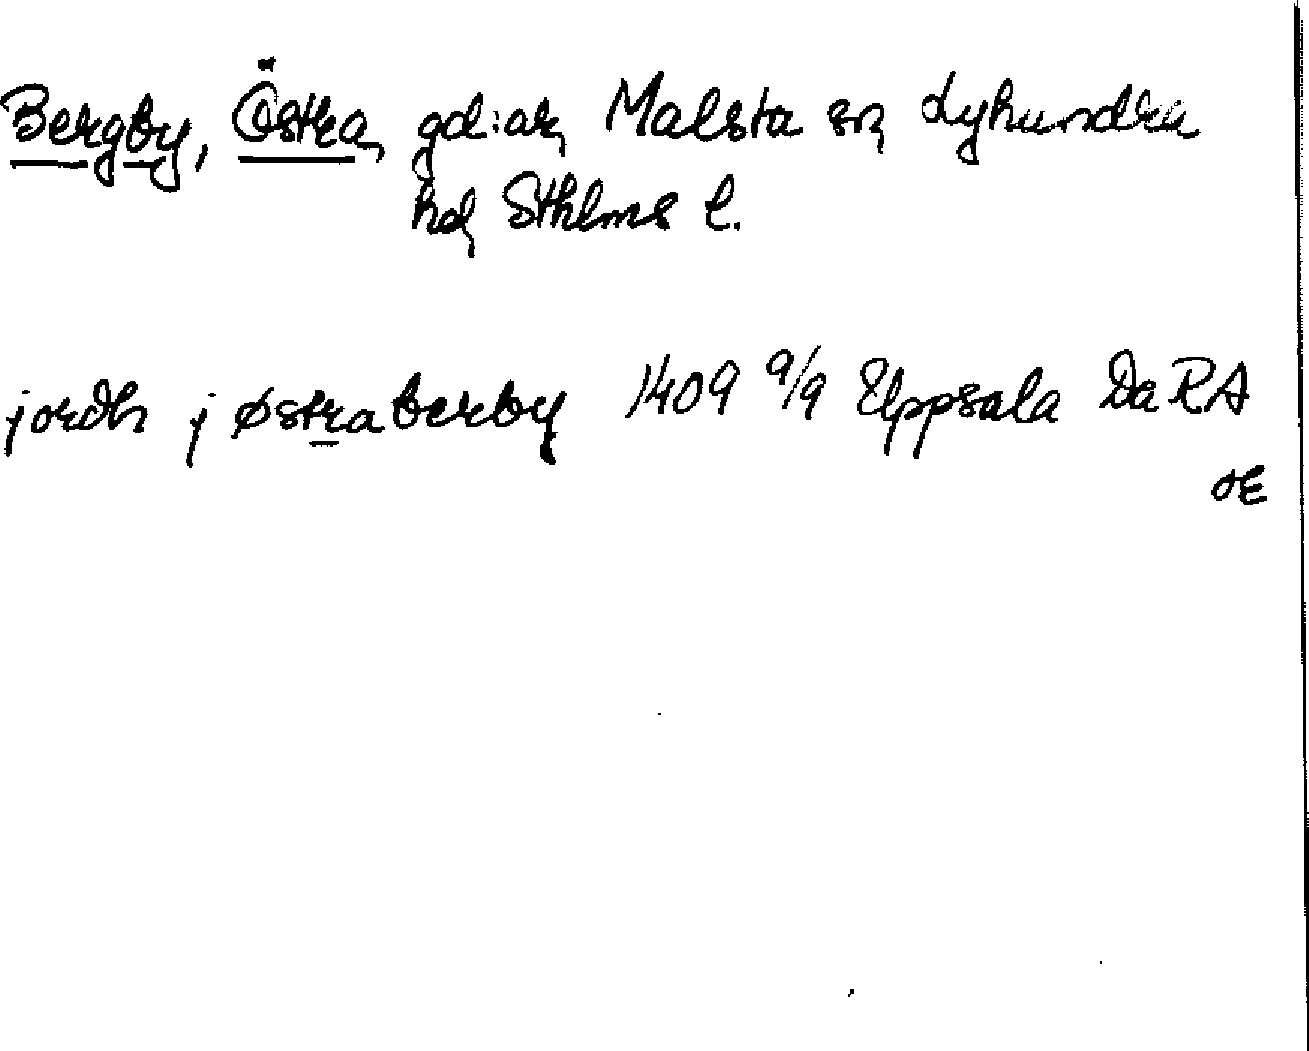 Bergby, Östra, gd:ar, Malsta sn, Lyhundra
hd, Sthlms l.
jordh j østraberby 1409 9/9 Uppsala Da RA
OE